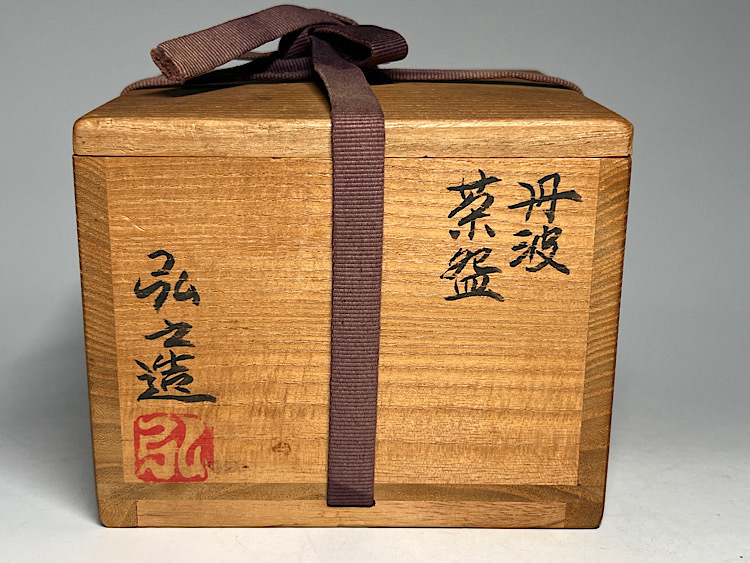 丹波
茶盌
弘之造
弘